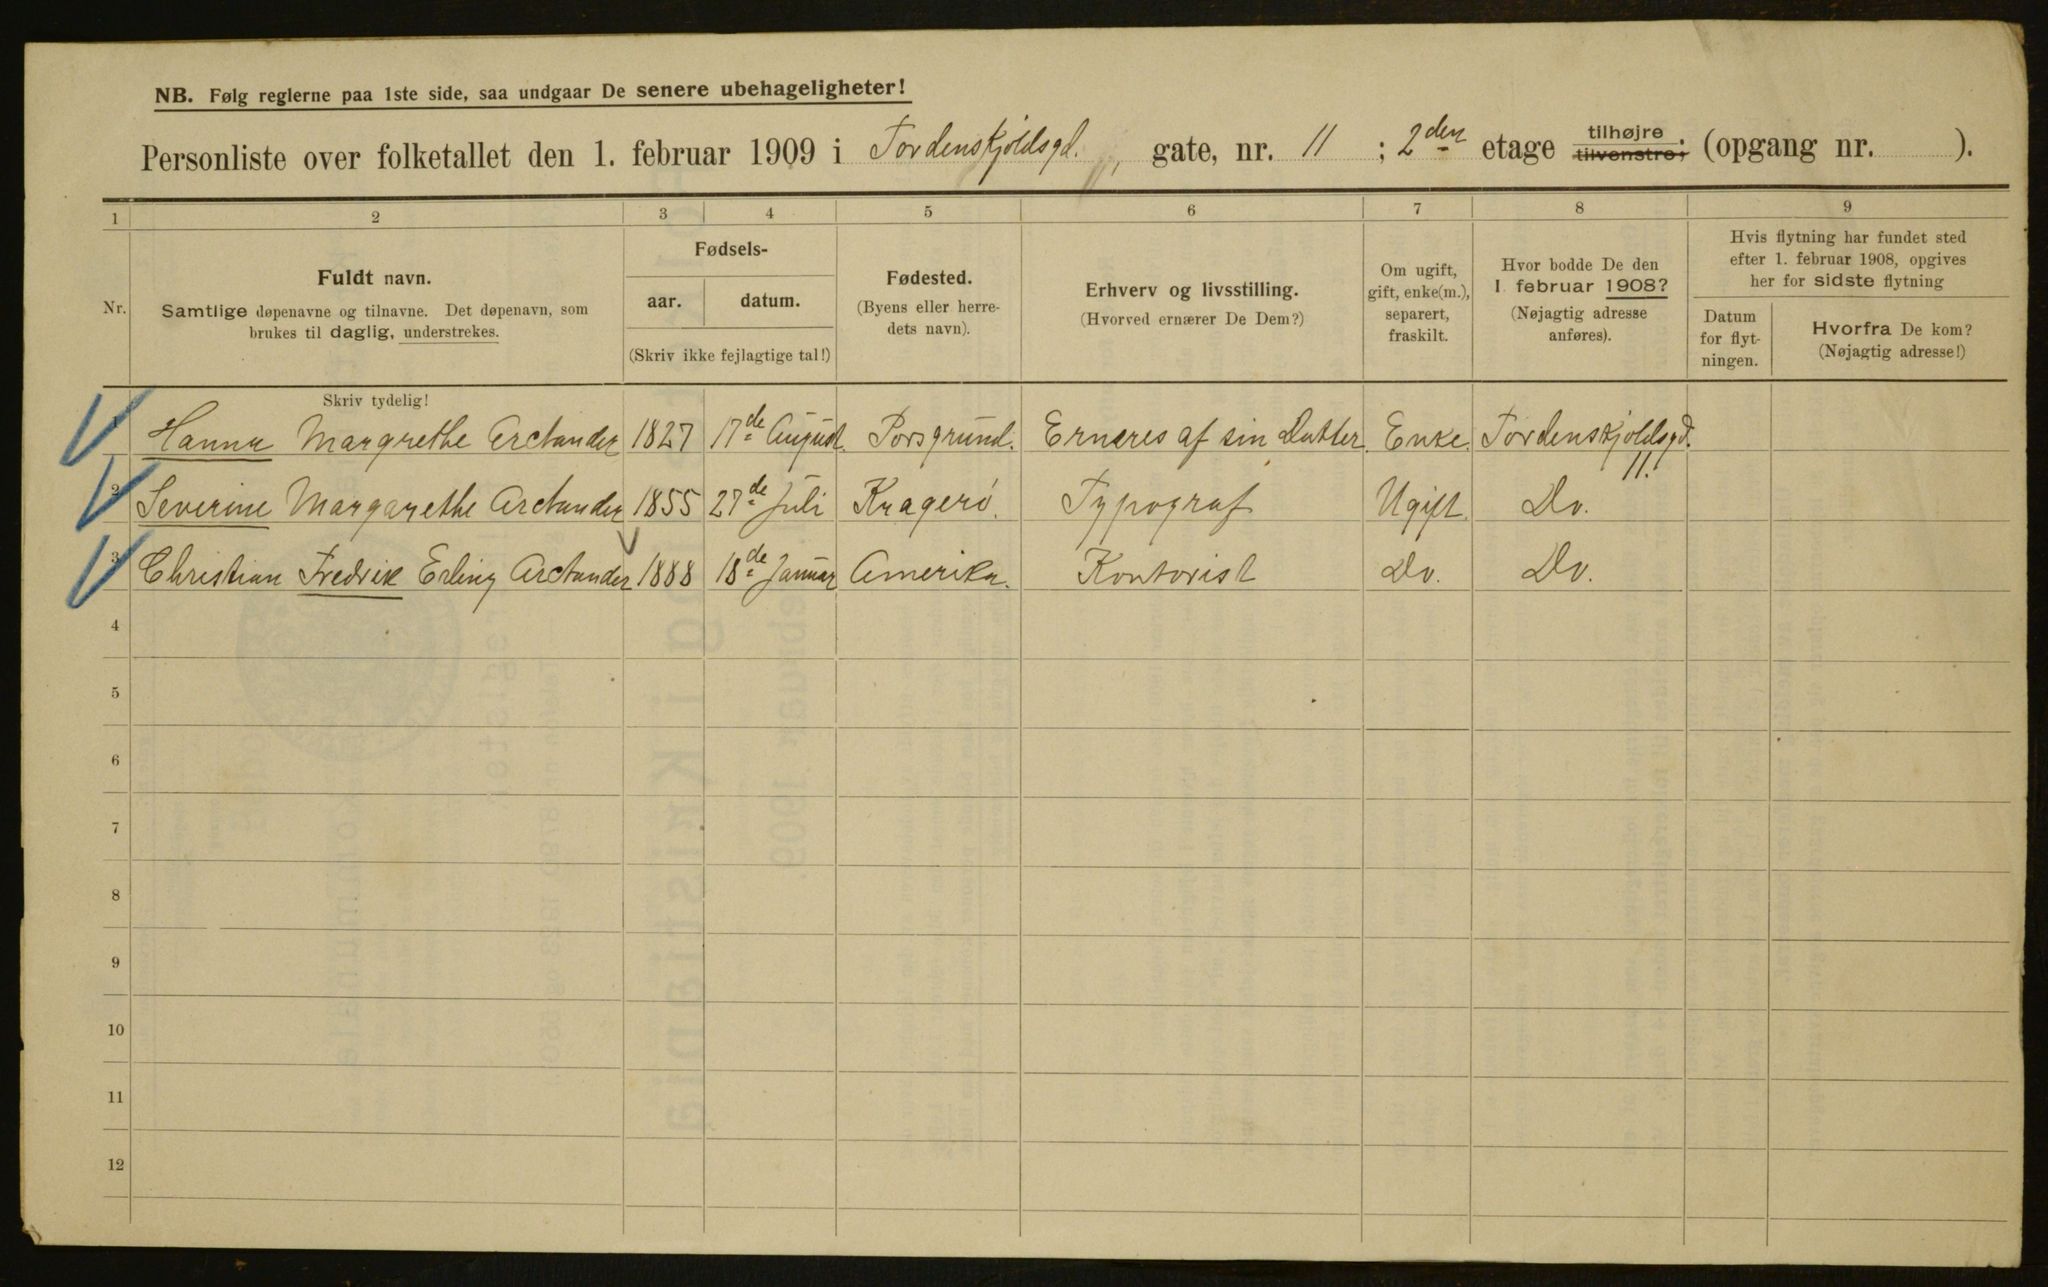 NB. Følg reglerne paa 1ste side, saa undgaar De senere ubehageligheter!
Personliste over folketallet den 1. februar 1909 i Tordenskjoldsgd., gate, nr. 11 ; 2den etage tilhøjre tilvenstre; (opgang nr. ).
1 2 3 4 5 6 7 8 9
Nr.
Fuldt navn.
Samtlige døpenavne og tilnavne. Det døpenavn, som
brukes til daglig, understrekes.
Fødsels-
aar. datum.
(Skriv ikke fejlagtige tal!)
Fødested.
(Byens eller herre-
dets navn).
Erhverv og livsstilling.
(Hvorved ernærer De Dem?)
Om ugift,
gift, enke(m.),
separert,
fraskilt.
Hvor bodde De den
1. februar 1908?
(Nøjagtig adresse
anføres).
Hvis flytning har fundet sted
efter 1. februar 1908, opgives
her for sidste flytning
Datum
for flyt-
ningen.
Hvorfra De kom?
(Nøjagtig adresse!)
Skriv tydelig!
1 Hanna Margrethe Arctander 1827 17de August. Porsgrund. Ernæres af sin Datter. Enke. Tordenskjoldsgd. 11.
2 Severine Margarethe Arctander 1855 27de Juli Kragerø. Typograf Ugift. Do.
3 Christian Fredrik Erling Arctander 1888 18de Januar Amerika. Kontorist Do. Do.
4
5
6
7
8
9
10
11
12